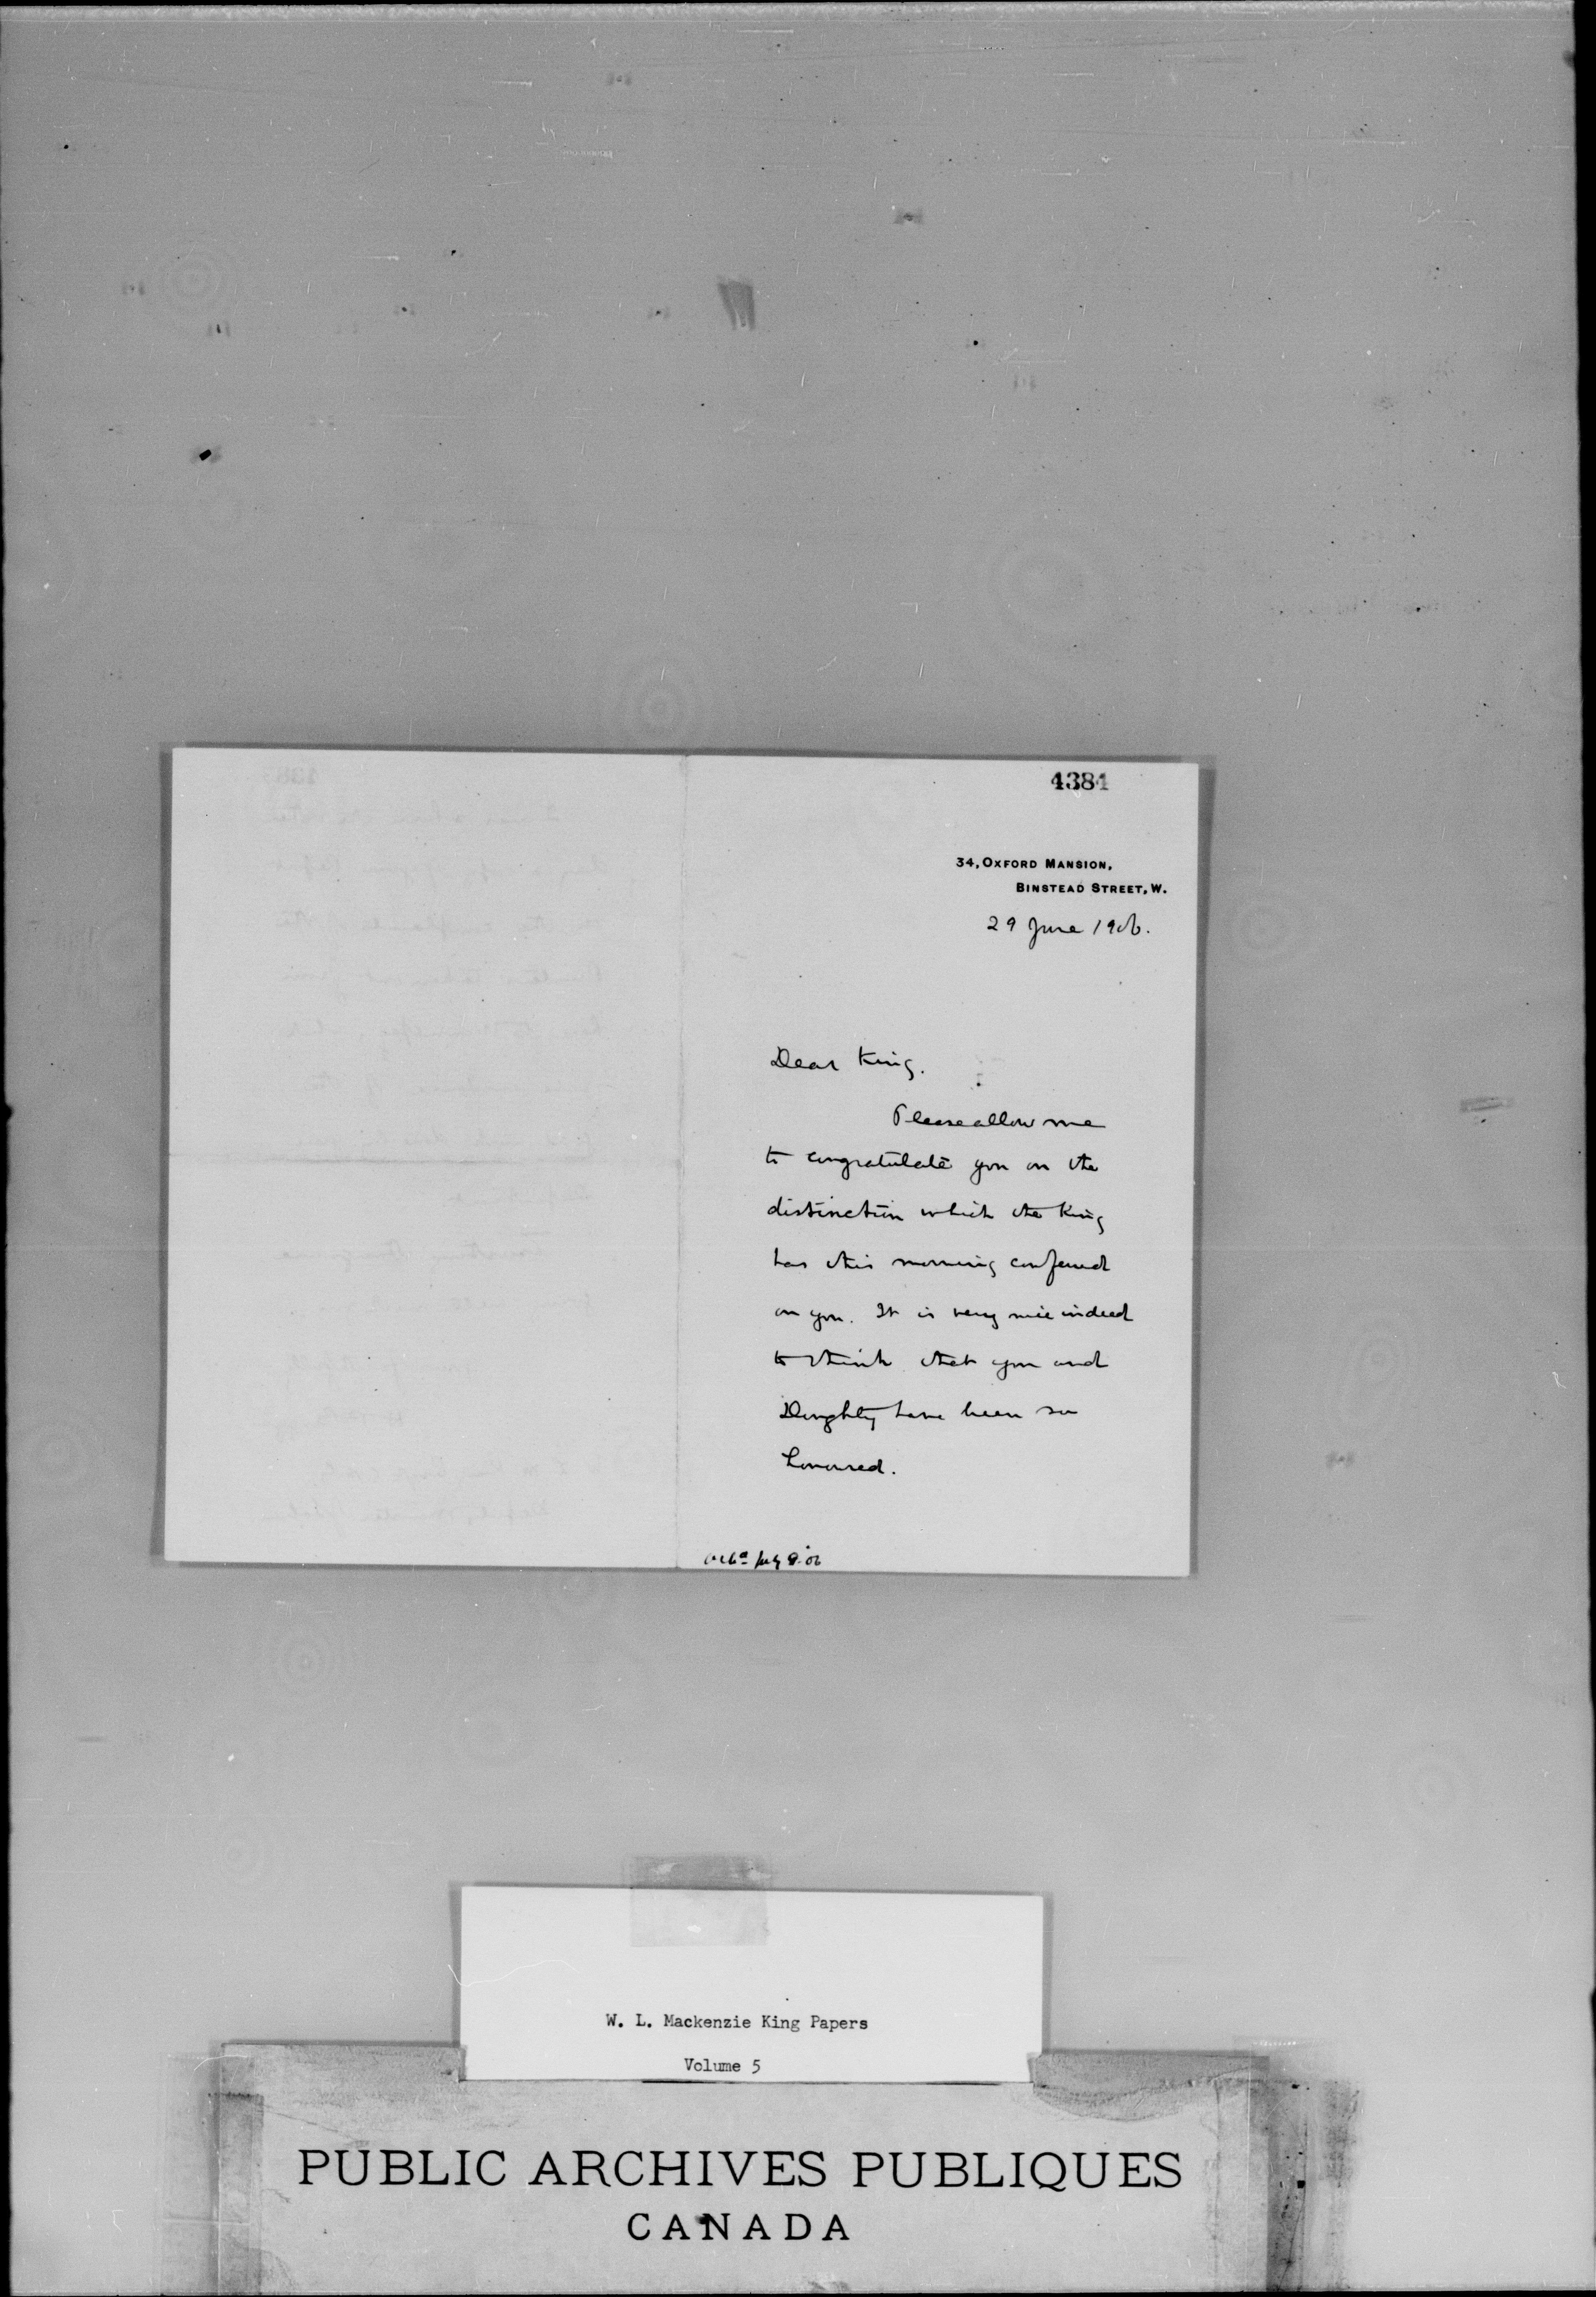 4384
34, OXFORD MANSION,
BINSTEAD STREET, W.
29 June 1906.
Dear King.
Please allow me
to congratulate you on the
distinction which the King
has this morning conferred
on you. It is very nice indeed
to think that you and
Doughty have been so
honoured.
July 9. 06
W. L. Mackenzie King Papers
Volume 5
PUBLIC ARCHIVES PUBLIQUES
CANADA